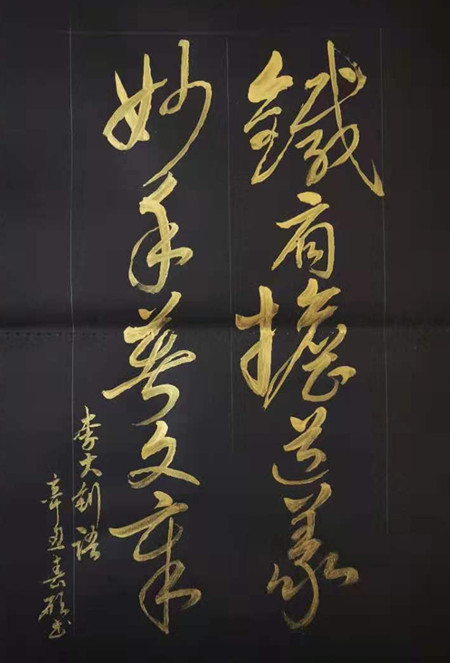 鐵肩擔道義
妙手著文章
李大釗語
辛丑春